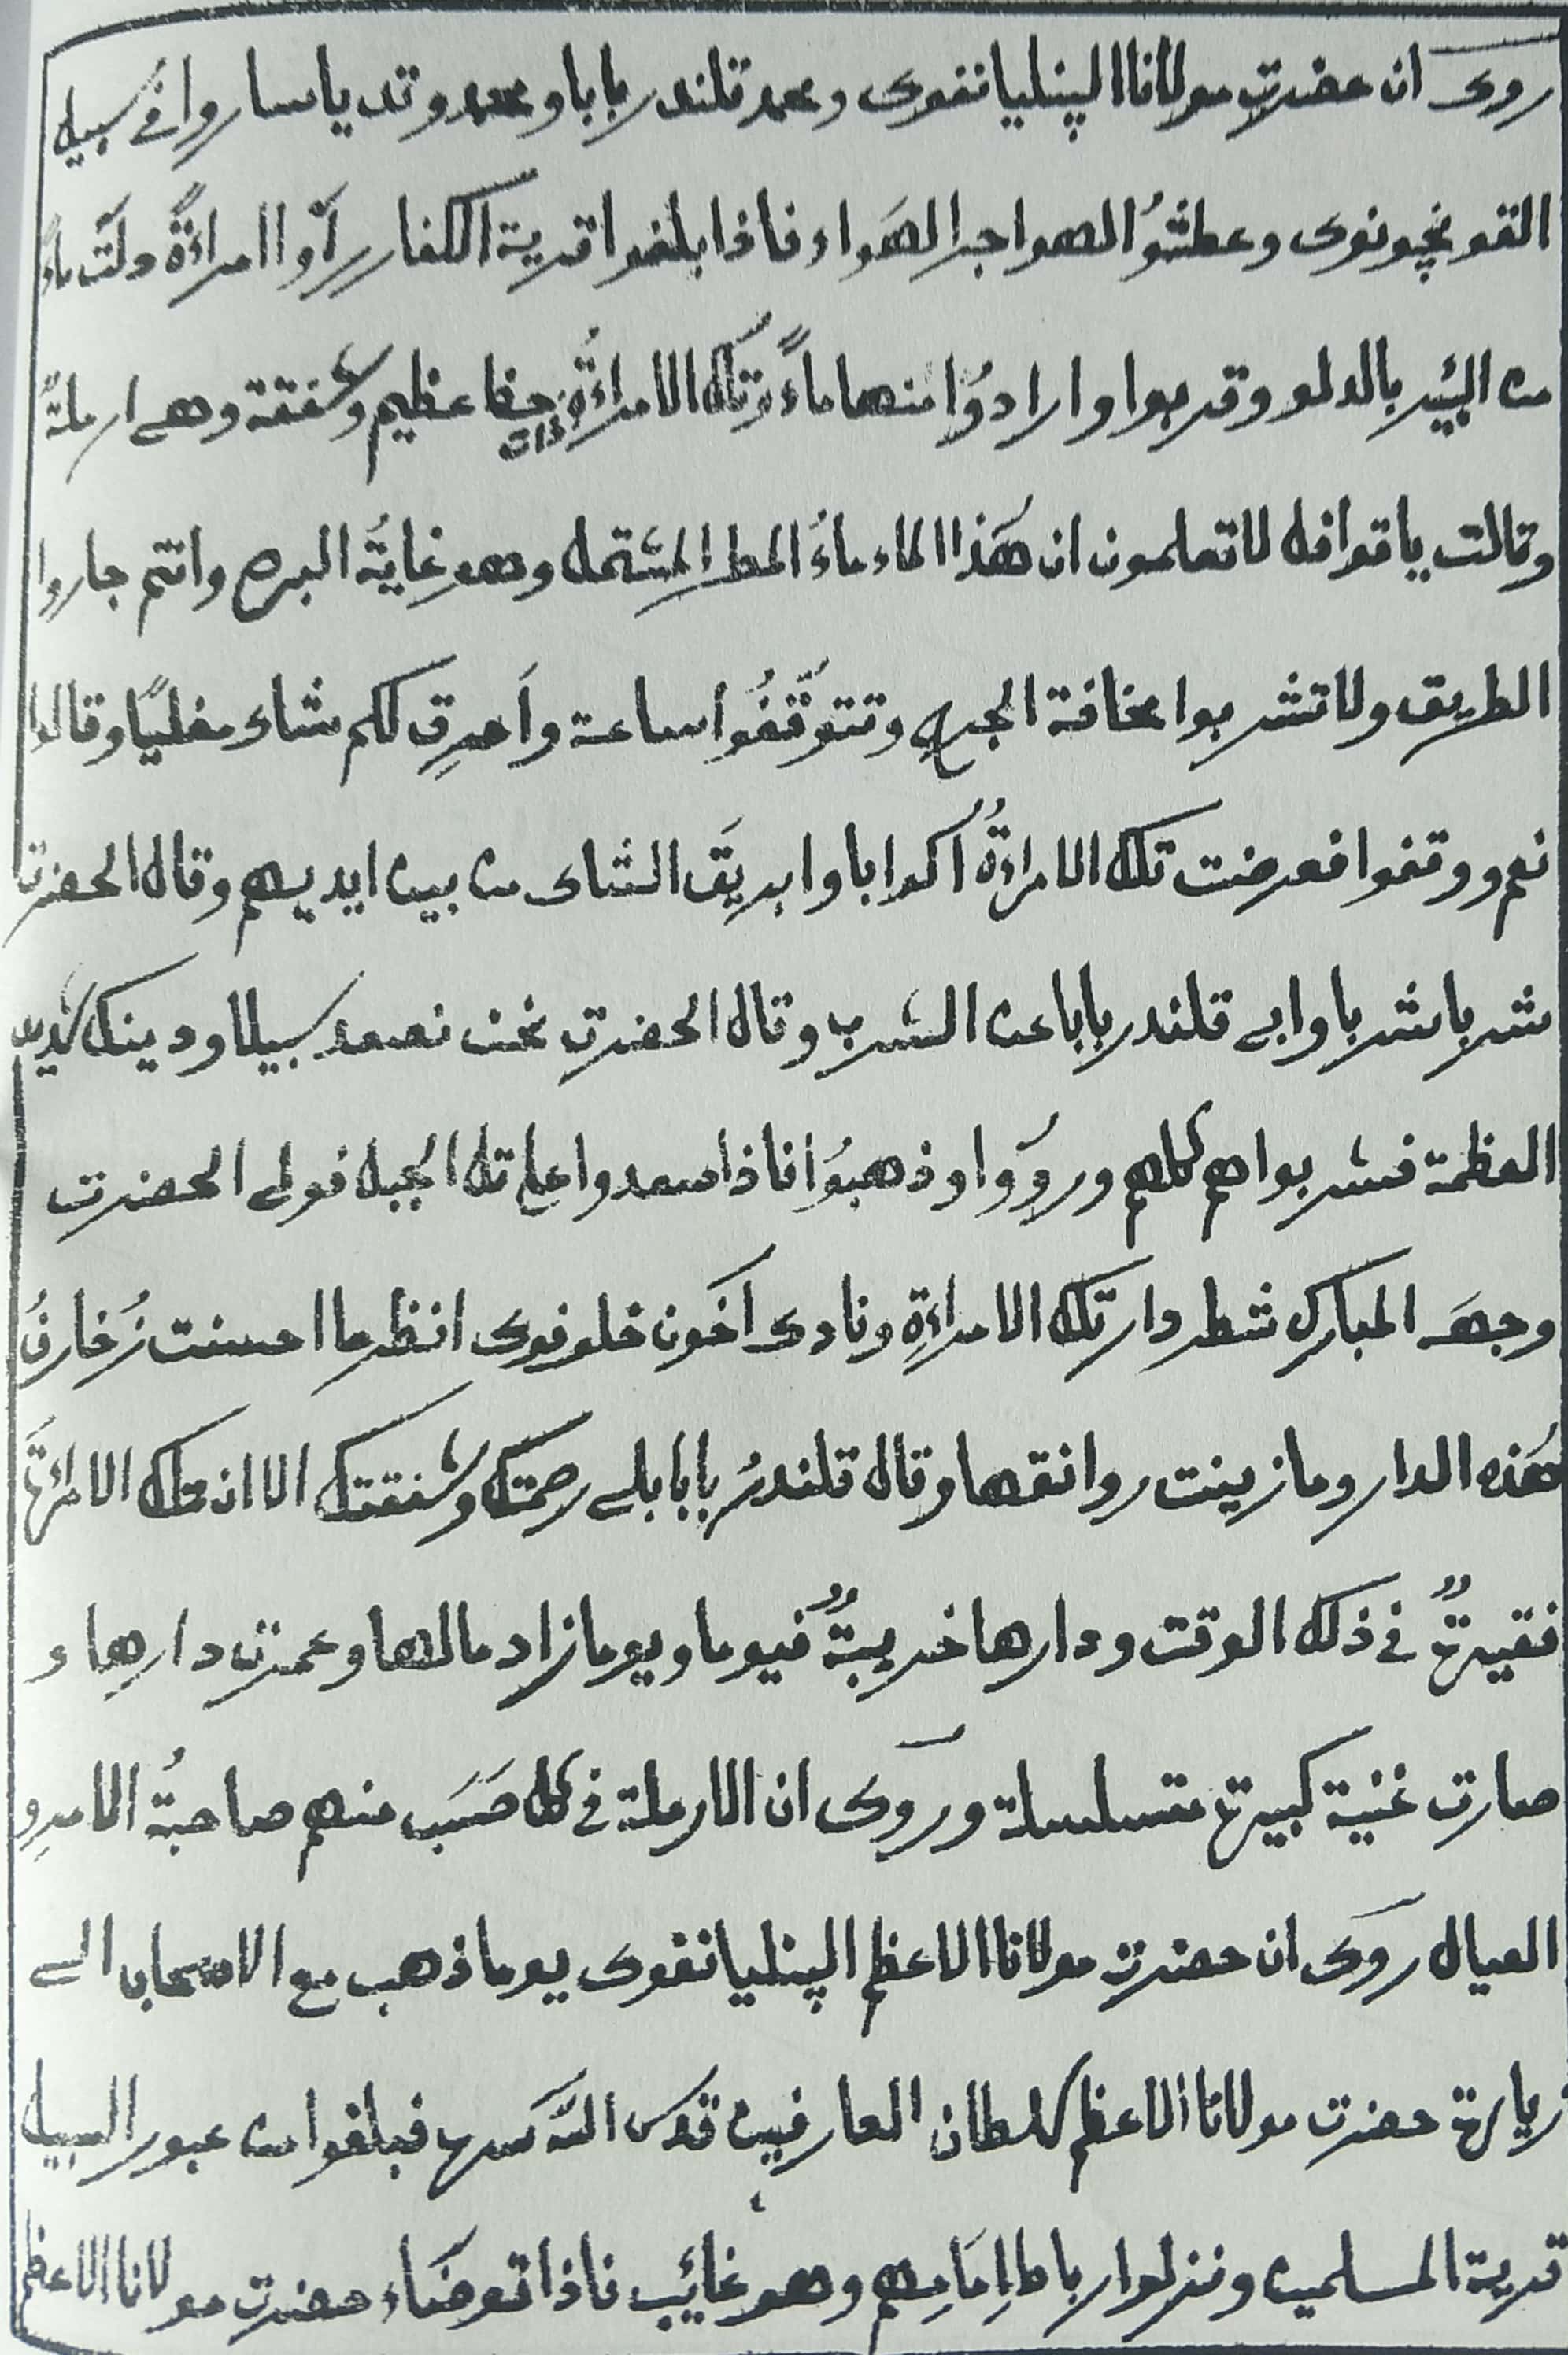 روى ان حضرت مولانا الپنليانفوى ومحمد قلندر بابا ومحمد وتد يا ساروا فى سبيل
القونچونوى وعطشوُا الهواجر الهَواء فاذا بلغوا قرية الكفار رآوا امراءةً دلّت ماءً
من البئر بالدلو وقربوا وارادوُا منها ماءً وتلك الامراءةُ ذات حفا عظيم وشفقة وهى ارملةٌ
وقالت يا قوافل لا تعلمون ان هَذا الماء ماءُ المطر المشتمل وهو غايَة البرد وانتم جاروا
الطريق ولا تشربوا مخافة الجرح وتتوقّفُوا ساعة واَحرِق لكم شاء مغليًا وقالوا
نعم ووقفوا فعرضت تلك الامراءةُ اكوابا وابريَق الشاى من بين ايديهم وقال الحضرت
شربا شربا وابى قلندر بابا عن الشرب وقال الحضرت نحن نصعد سبيلا ودينك
العظمة فشربوا هم كلهم وروَوا وذهبوُا فاذا صعدوا على تل الجبل فولى الحضرت
وجهَه المبارك شطر دار تلك الامراءةِ ونادى آخون خلوفوى انظر ما احسنت زُخارفُ
هَذه الدار وما زينت روانقها وقال قلندرُ بابا بلى رحمتك وشفقتك الا ان تلك الامراءةَ
فقيرةٌ فى ذلك الوقت ودارها خريبةٌ فيوما ويوما زاد مالها وعمرت دارِها و
صارت غنية كبيرة متسلسلة وروى ان الارملة فى كل حَسَب منهم صاحبةُ الامرِ و
العيال روى ان حضرت مولانا الاعظم الپنليانفوى يوما ذهب مع الاصحاب الى
زيارة حضرت مولانا الاعظم سلطان العارفين قدس اللّه سره فبلغوا من عبور السبيل
قرية المسلمين ونزلوا رباط اِمَامِهم وهو غائب فاذا توضَاء حضرت مولانا الاعظم